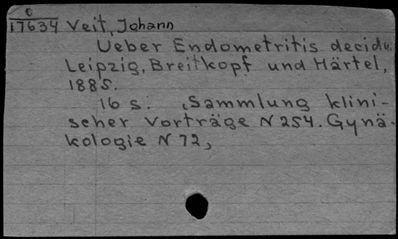 C
17634 Veit, Johann
Ueber Endometritis decidu.
Leipzig, Breitkopf und Härtel,
1885.
16 s. (Sammlung klini-
scher Vorträge N 254. Gynä-
kologie N 72,